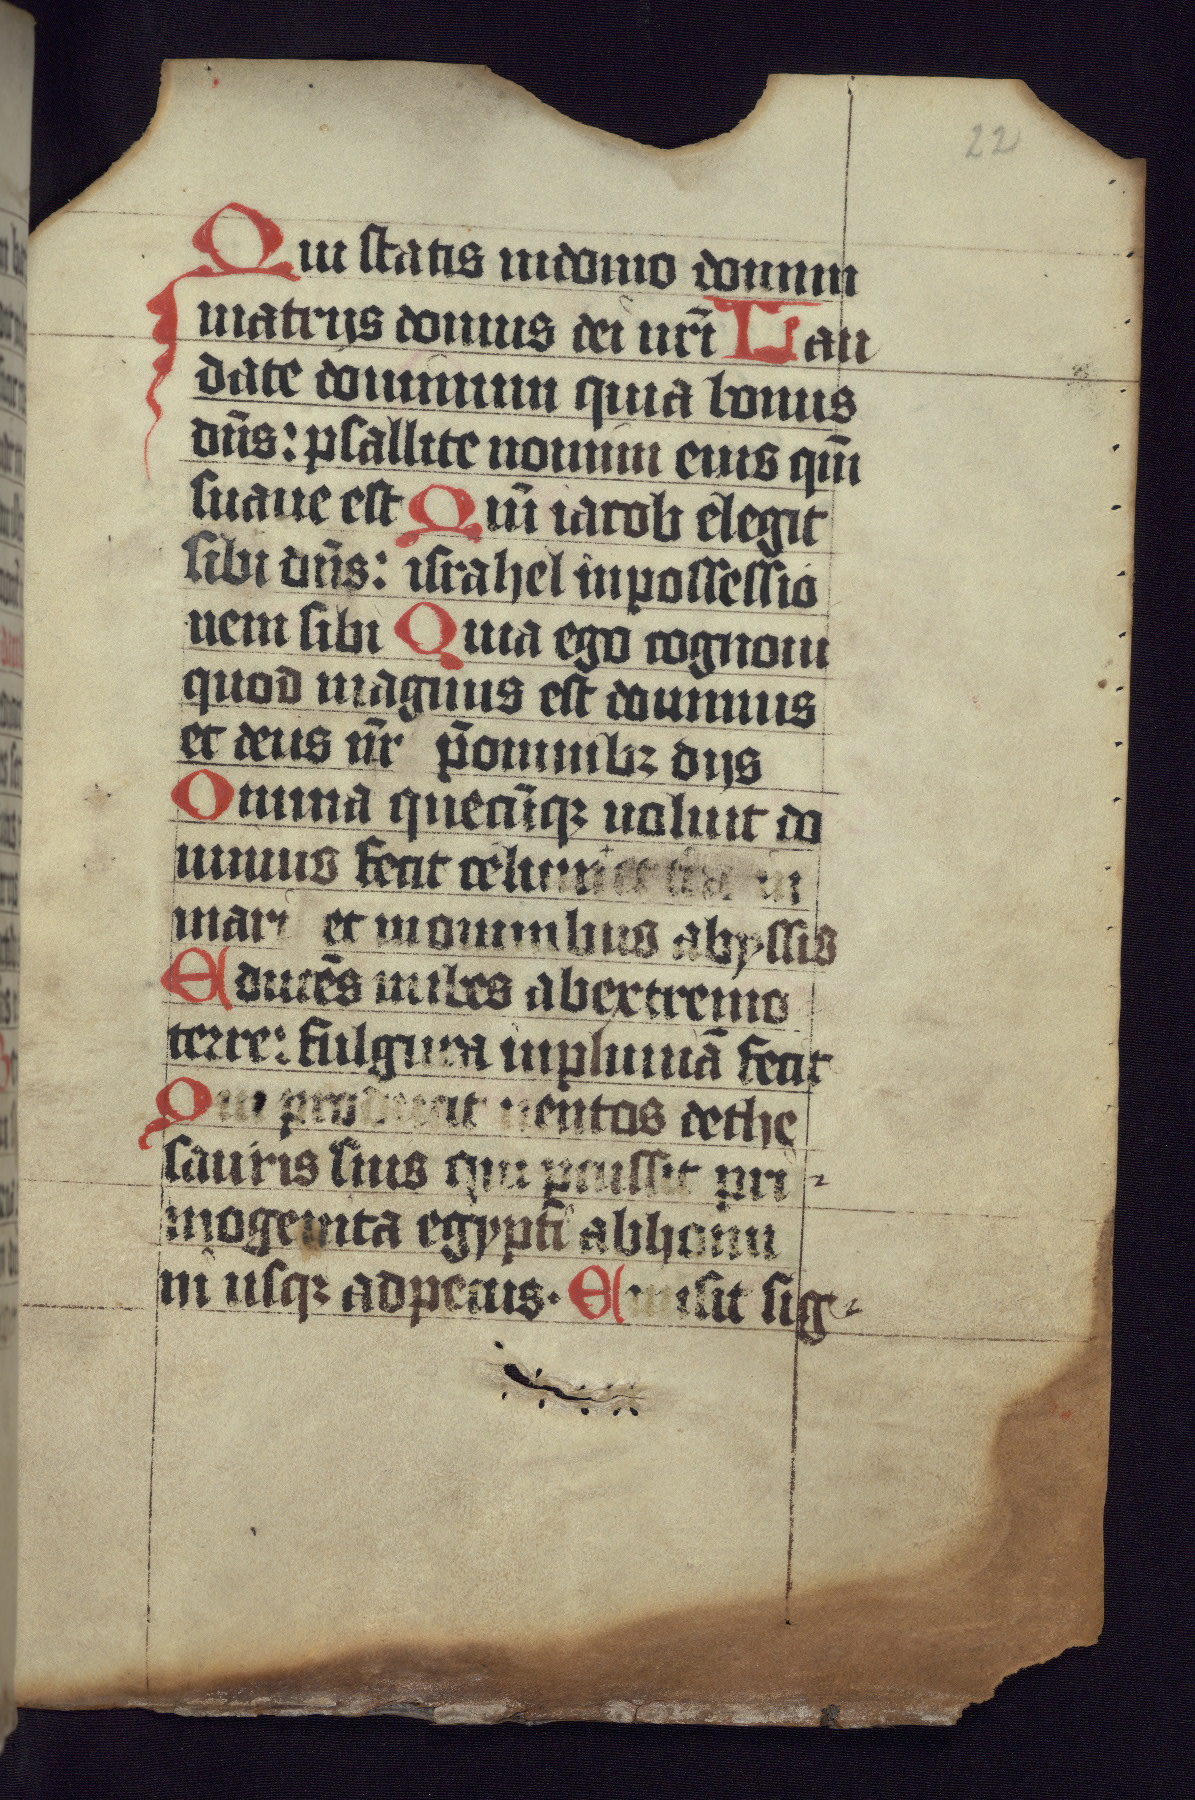 22
Qui statis in domo domini
in atriis domus dei nr̄i Lau
date dominum quia bonus
dn̄s: psallite nomini eius qm̄
suaue est Qm̄ iacob elegit
sibi dn̄s: israhel in possessio
nem sibi Quia ego cognoui
quod magnus est dominus
et deus nr̄ p̄ omnibꝫ diis
Omnia quecūqꝫ uoluit do
minus fecit celum et in
mari et in omnibus abyssis
Educēs nubes ab extremo
terre: fulgura in pluuiā fecit
Qui producit uentos de the
sauris suis qui pcussit pri-
mogenita egypti ab homi
ni usqꝫ ad pecus. Emisit sig-